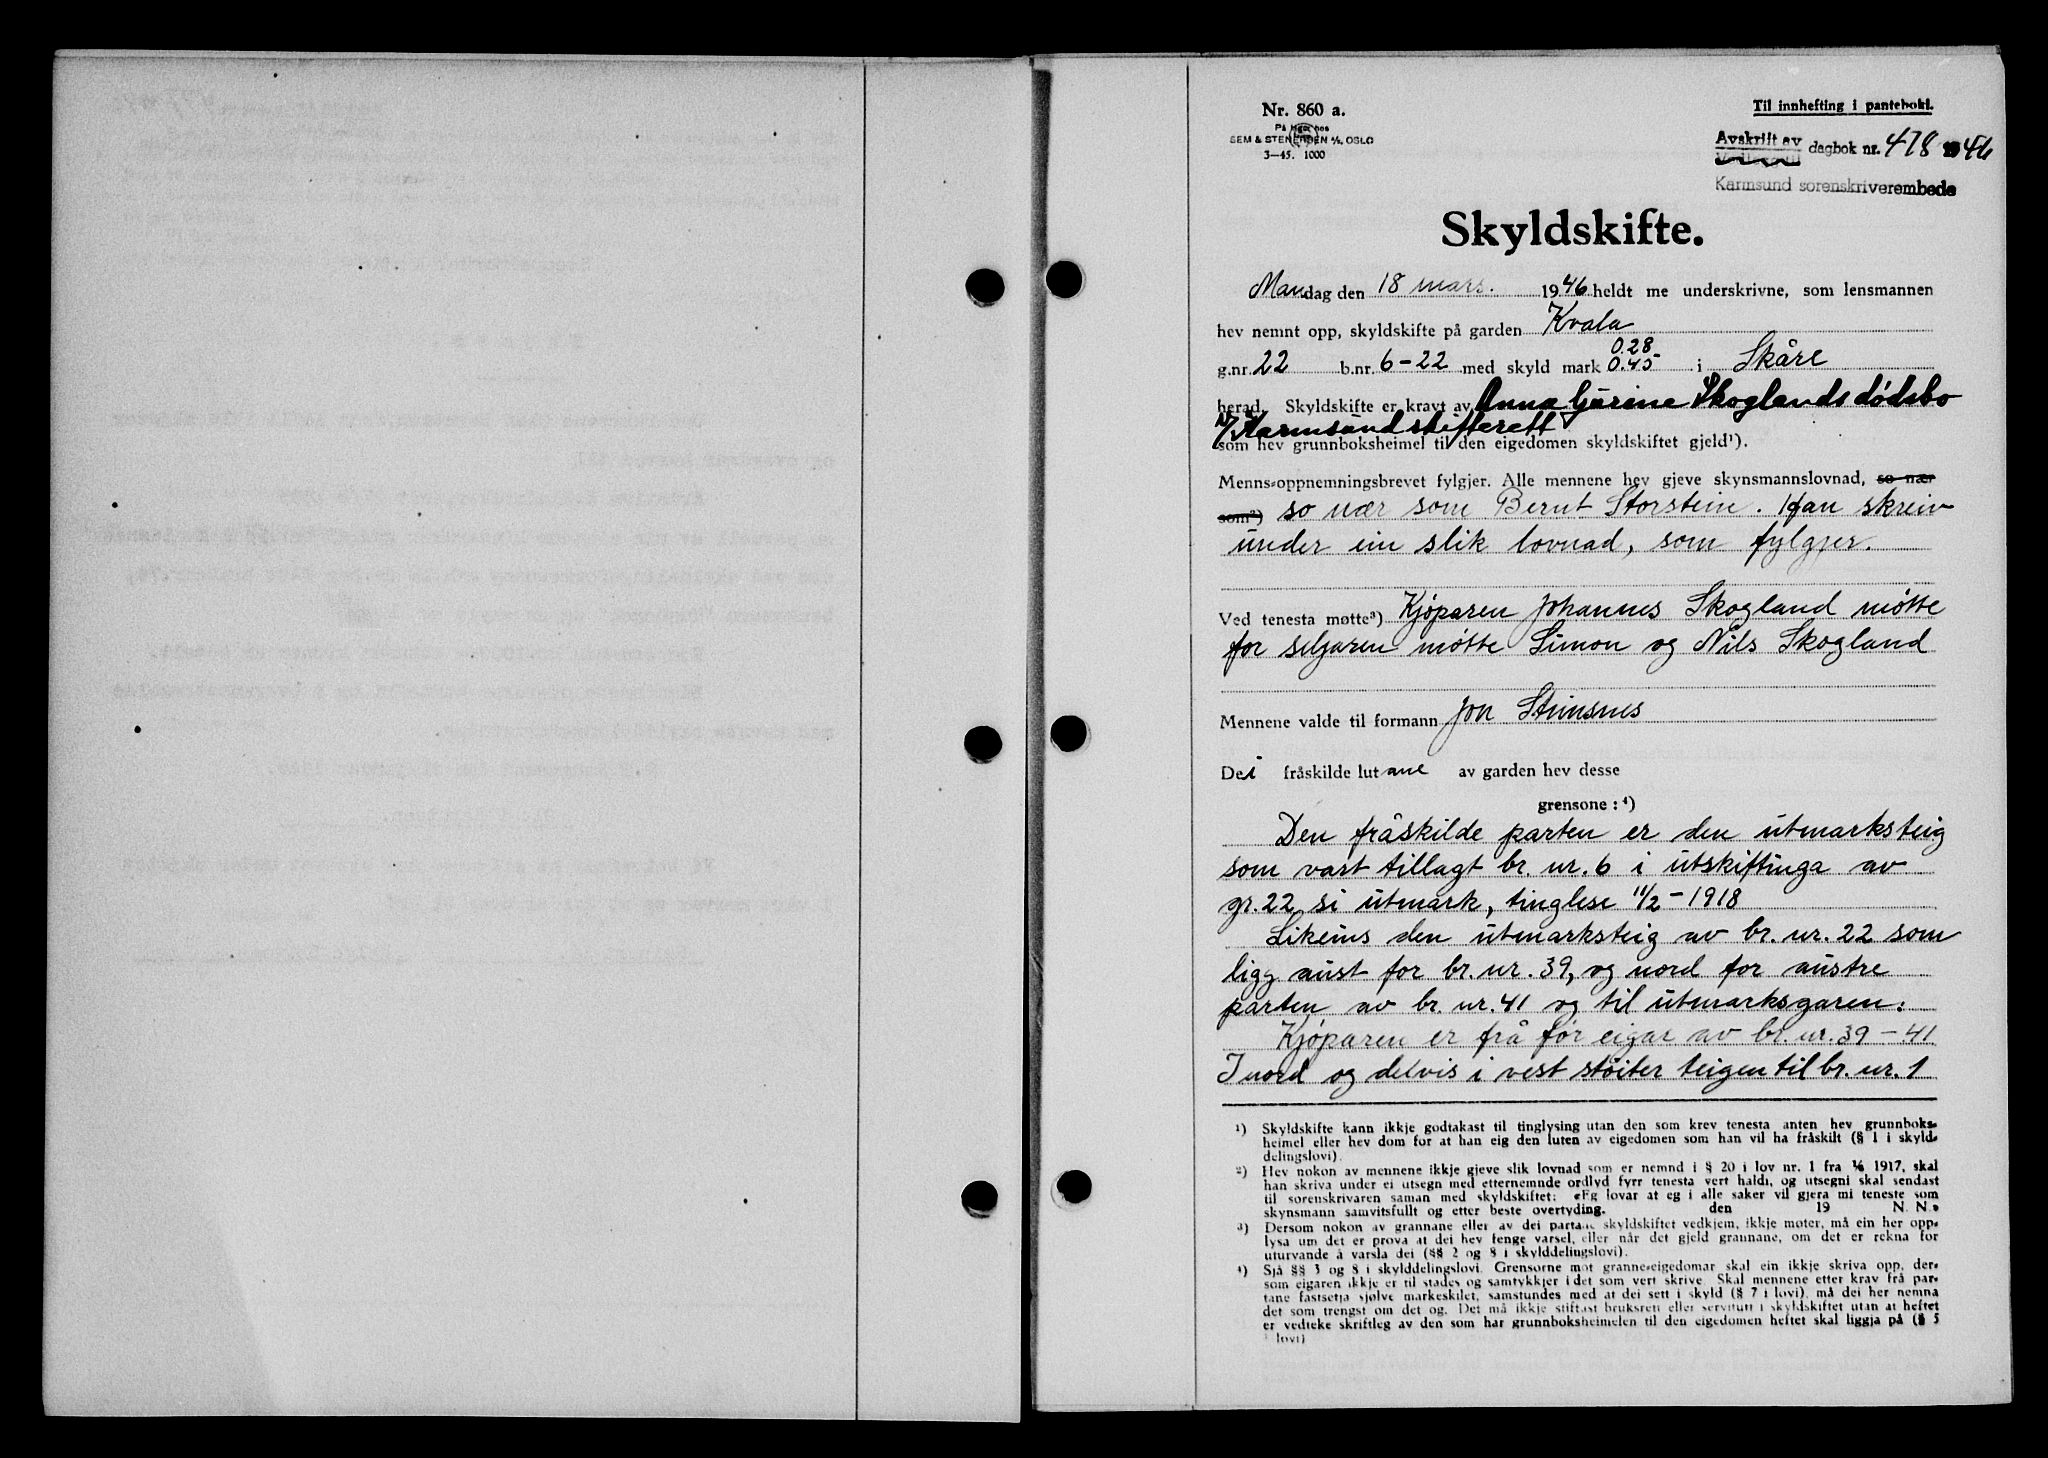 Nr. 860 a.
På lager hos
SEM & STENERSEN A/S, OSLO
3—45. 1000
Til innhefting i panteboki.
Avskrift av
dagbok nr. 478 1946
Karmsund sorenskriverembede
Skyldskifte.
Mandag den 18 mars. 1946 heldt me underskrivne, som lensmannen
hev nemnt opp, skyldskifte på garden Kvala
0.28
g.nr. 22 b.nr. 6-22 med skyld mark 0.45 i Skåre
herad. Skyldskifte er kravt av Anna Gurine Skoglands dødsbo
v/ Karmsund skifterett
som hev grunnboksheimel til den eigedomen skyldskiftet gjeld¹).
Menns-oppnemningsbrevet fylgjer. Alle mennene hev gjeve skynsmannslovnad, so nær
som²) so nær som Bernt Storstein. Han skreiv
under ein slik lovnad, som fylgjer.
Ved tenesta møtte³) Kjøparen Johannes Skogland møtte
for seljaren møtte Simon og Nils Skogland
Mennene valde til formann Jon Steinsnes
Dei fråskilde lutane av garden hev desse
grensone: ⁴)
Den fråskilde parten er den utmarksteig
som vart tillagt br. nr. 6 i utskiftinga av
gr. 22 si utmark, tinglese 11/2-1918
Likeins den utmarksteig av br. nr. 22 som
ligg aust for br. nr. 39, og nord for austre
parten av br. nr. 41 og til utmarksgaren.
Kjøparen er frå før eigar av br. nr. 39-41
I nord og delvis i vest støiter teigen til br. nr. 1
¹) Skyldskifte kann ikkje godtakast til tinglysing utan den som krev tenesta anten hev grunnboks-
heimel eller hev dom for at han eig den luten av eigedomen som han vil ha fråskilt (§ 1 i skyld-
delingslovi).
²) Hev nokon av mennene ikkje gjeve slik lovnad som er nemnd i § 20 i lov nr. 1 fra 1/6 1917, skal
han skriva under ei utsegn med etternemnde ordlyd fyrr tenesta vert haldi, og utsegni skal sendast
til sorenskrivaren saman med skyldskiftet: «Eg lovar at eg i alle saker vil gjera mi teneste som
skynsmann samvitsfullt og etter beste overtyding. den 19 N. N.»
³) Dersom nokon av grannane eller av dei partane skyldskiftet vedkjem, ikkje møter, må ein her opp-
lysa um det er prova at dei hev fenge varsel, eller når det gjeld grannane, om det er rekna for
uturvande å varsla dei (§§ 2 og 8 i skylddelingslovi).
⁴) Sjå §§ 3 og 8 i skylddelingslovi. Grensorne mot granne-eigedomar skal ein ikkje skriva opp, der-
som eigaren ikkje er til stades og samtykkjer i det som vert skrive. Skal mennene etter krav frå par-
tane fastsetja sjølve markeskilet, samstundes med at dei sett i skyld (§ 7 i lovi), må dei her nemna
det som trengst om det og. Det må ikkje stiftast bruksrett eller servitutt i skyldskiftet utan at heftet
er vedteke skriftleg av den som har grunnboksheimelen til den eigedomen heftet skal liggja på (§ 5
i lovi)